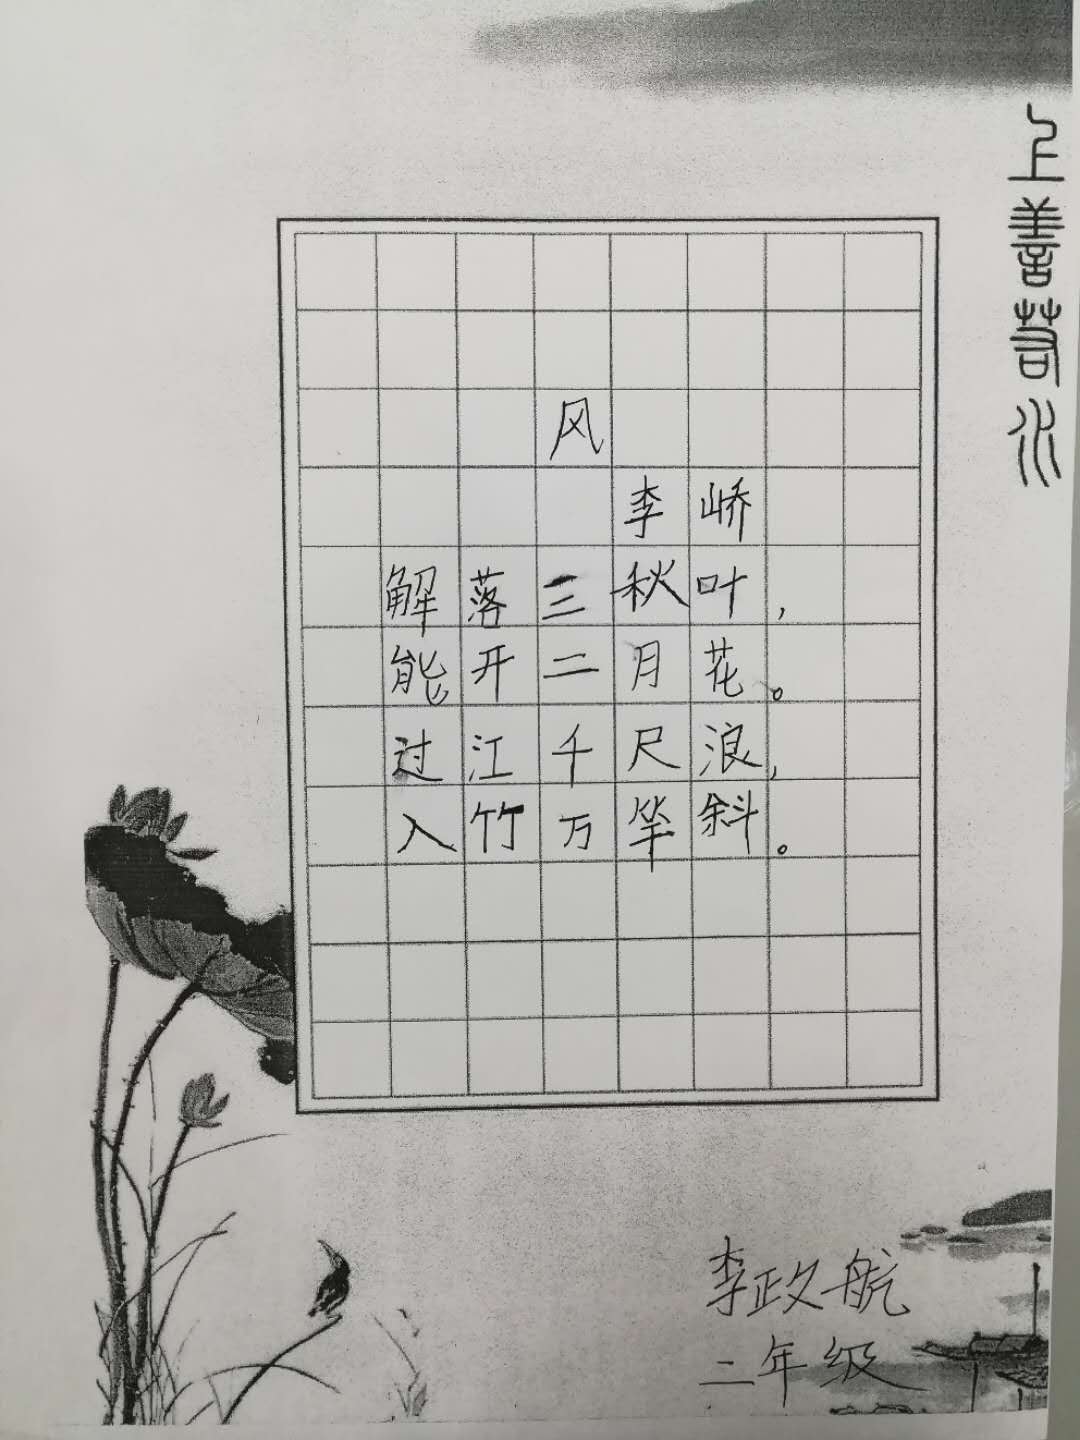 上善若水
风
李峤
解落三秋叶，
能开二月花。
过江千尺浪，
入竹万竿斜。
李政航
二年级